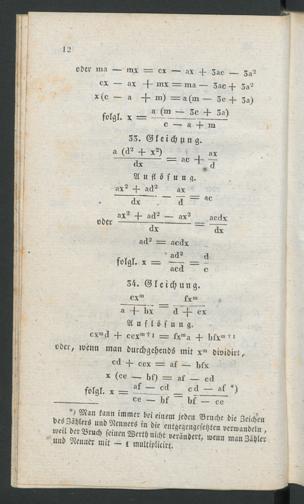 12
oder ma — mx = cx — ax + 3ac — 3a²
cx — ax + mx = ma — 3ac + 3a²
x (c — a + m) = a (m — 3c + 3a)
folgl. x = a (m — 3c + 3a) / c — a + m
33. Gleichung.
a (d² + x²) / dx = ac + ax / d
Auflösung.
ax² + ad² / dx — ax / d = ac
oder ax² + ad² — ax² / dx = acdx / dx
ad² = acdx
folgl. x = ad² / acd = d / c
34. Gleichung.
cxᵐ / a + bx = fxᵐ / d + ex
Auflösung.
cxᵐd + cexᵐ⁺¹ = fxᵐa + bfxᵐ⁺¹
oder, wenn man durchgehends mit xᵐ dividirt,
cd + cex = af — bfx
x (ce — bf) = af — cd
folgl. x = af — cd / ce — bf = cd — af / bf — ce *)
*) Man kann immer bei einem jeden Bruche die Zeichen
des Zählers und Nenners in die entgegengesetzten verwandeln,
weil der Bruch seinen Werth nicht verändert, wenn man Zähler
und Nenner mit — 1 multiplicirt.